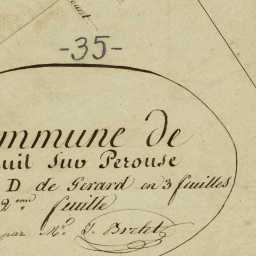 -35-
ommune de
uil sur Perouse
D de Gerard en 3 feuilles
2eme feuille
par Mr. J. Brolet